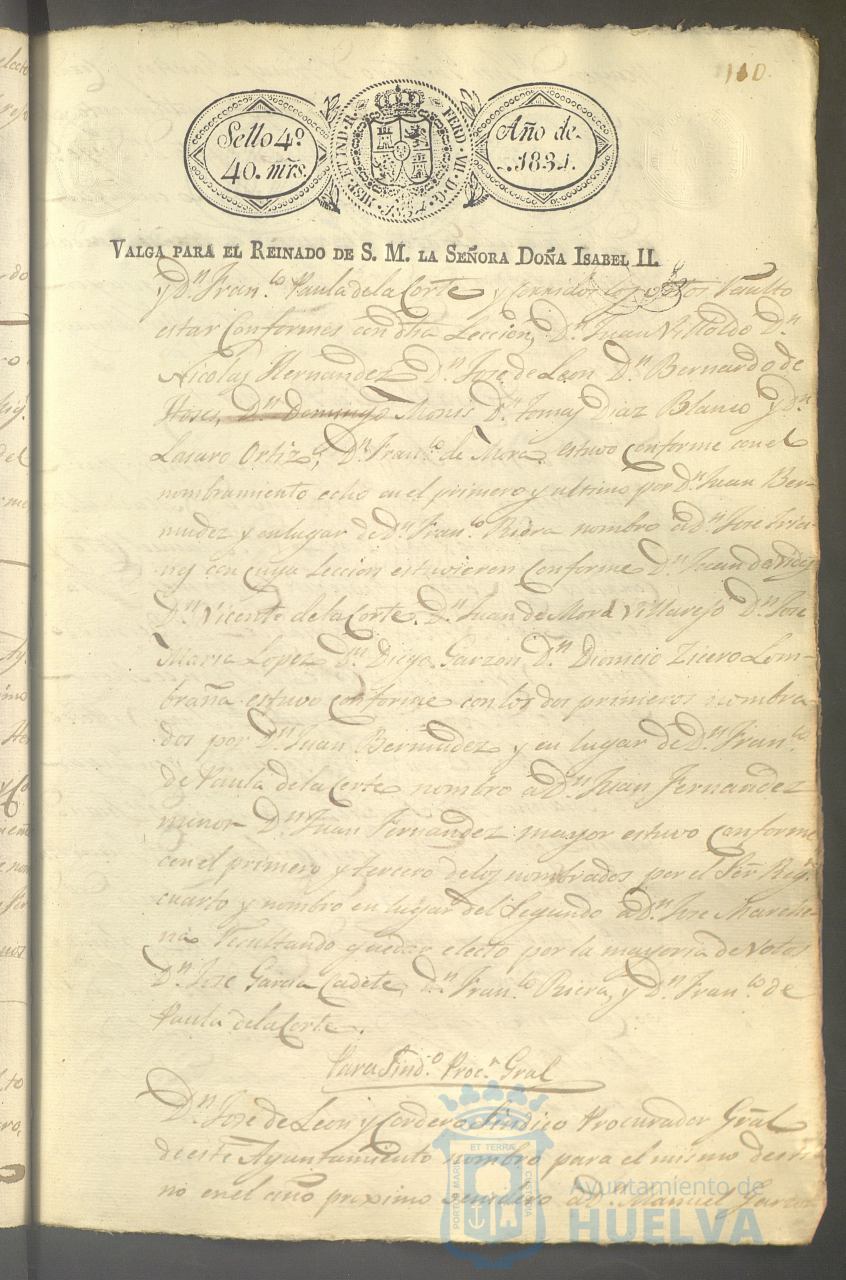 110.
Sello 4º
40. mrs.
HISP. ET IND. R. FERD. VII. D. G. 1834.
Año de
1834.
VALGA PARA EL REINADO DE S. M. LA SEÑORA DOÑA ISABEL II.
y Dn. Franco. Paula de la Corte y corridos los votos resulto
estar Conformes con dha Leccion, Dn. Juan Dn.
Nicolas Hernandez Dn. Jose de Leon Dn. Bernardo de
Hoses, Dn. Domingo Mones Dn. Tomas Diaz Blanco y Dn.
Lasaro Ortiz, Dn. Franco. de Mora estuvo conforme con el
nombramiento echo en el primero y ultimo por Dn. Juan Ber-
mudez y en lugar de Dn. Franco. Riera nombro a Dn. Jose
con cuya Leccion estuvieren Conforme Dn. Juan de
Dn. Vicente de la Corte. Dn. Juan de Mora Villarejo Dn. Jose
Maria Lopez Dn. Diego Garzon, Dn. Dionicio Lom-
braña estuvo conforme con los dos primeros nombra-
dos por Dn. Juan Bermudez y en lugar de Dn. Franco.
de Paula de la Corte nombro a Dn. Juan Fernandez
menor Dn. Juan Fernandez mayor estuvo Conforme
con el primero y tercero de los nombrados por el Sor. Regr.
cuarto y nombro en lugar del Segundo a Dn. Jose Marche-
na Resultando quedar electo por la mayoria de Votos
Dn. Jose Garcia Cadete, Dn. Franco. Riera, y Dn. Franco. de
Paula de la Corte.
Para Sindo. Procr. Gral
Dn. Jose de Leon y Cordero Sindico Procurador Gral
de este Ayuntamiento nombro para el mismo desti-
no en el año proximo venidero a D. Manuel Garzon
PORTUS MARIS ET TERRAE CUSTODIA
Ayuntamiento de
HUELVA